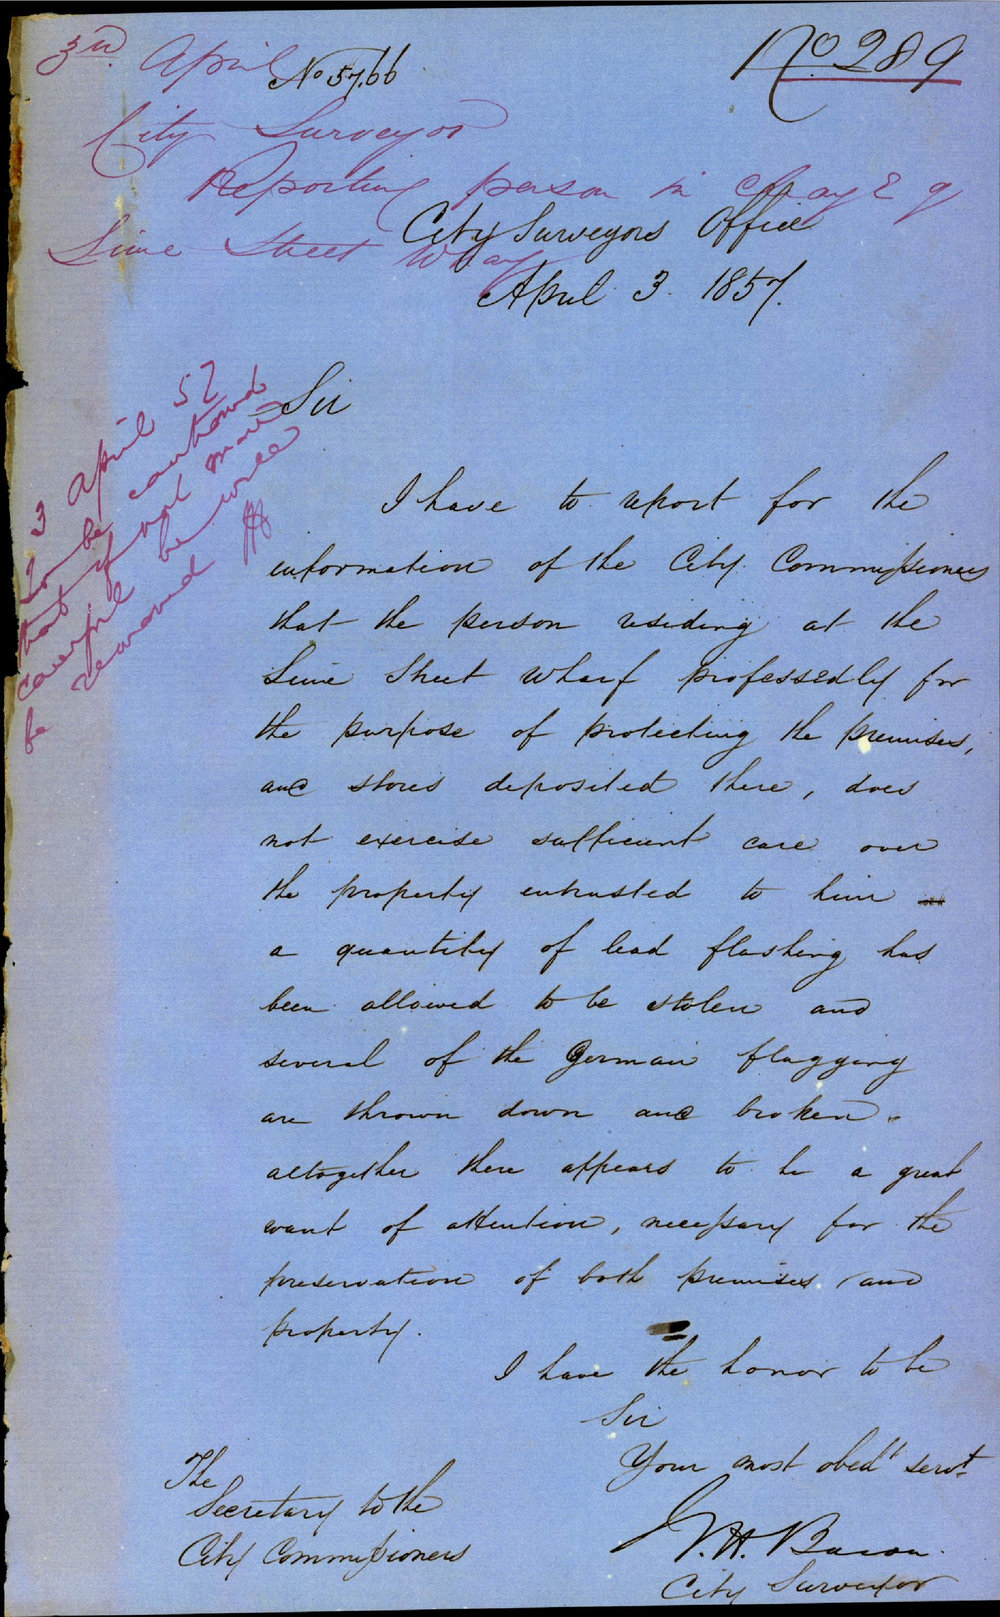 3rd April
No 57.66
No 289
City Surveyor
Reporting person in charge of
Lime Street Wharf
City Surveyors Office
April 3. 1857.
3 April 57
To be cautioned
that if not more
careful he will
be removed
Sir
I have to report for the
information of the City Commissioners
that the person residing at the
Lime Street Wharf professedly for
the purpose of protecting the premises,
and stores deposited there, does
not exercise sufficient care over
the property entrusted to him
a quantity of lead flashing has
been allowed to be stolen and
several of the German flagging
are thrown down and broken.
altogether there appears to be a great
want of attention, necessary for the
preservation of both premises and
property.
I have the honor to be
Sir
Your most obedt servt
The
Secretary to the
City Commissioners
Bacon
City Surveyor